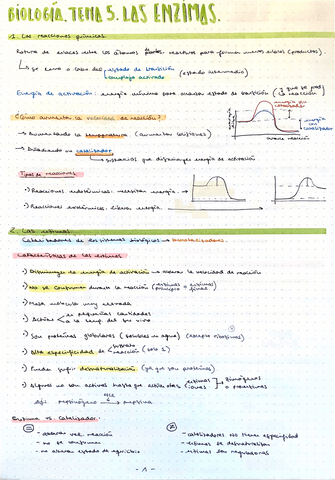 BIOLOGÍA. TEMA 5. LAS ENZIMAS.
1. Las reacciones químicas
Rotura de enlaces entre los átomos reactivos para formar nuevos enlaces (productos).
↳ se lleva a cabo del estado de transición (estado intermedio)
complejo activado
Energía de activación: energía mínima para alcanzar estado de transición
¿Cómo aumentar la velocidad de reacción?
→ Aumentando la temperatura (aumentar colisiones)
→ Añadiendo un catalizador
↳ sustancias que disminuyen energía de activación
energía sin catalizador
energía con catalizador
avance reacción
Tipos de reacciones
·) Reacciones endotérmicas: necesitan energía →
·) Reacciones exotérmicas: liberan energía
2. Las enzimas
Catalizadores de los sistemas biológicos → biocatalizadores.
Características de las enzimas
·) Disminuyen la energía de activación → aceleran la velocidad de reacción
·) No se consumen durante la reacción
·) Masa molecular muy elevada
·) Actúan en pequeñas cantidades
a la temp. del ser vivo
·) Son proteínas globulares (solubles en agua) (excepto ribozimas)
·) Alta especificidad de sustrato
reacción (solo 1)
·) Pueden sufrir desnaturalización (ya que son proteínas)
·) Algunas no son activas hasta que actúan otras enzimas
iones
zimógenos
o proenzimas
Ej: Pepsinógeno → Pepsina
HCl
Enzima vs. Catalizador:
=
≠
- aceleran vel. reacción
- no se consumen
- no alteran estado de equilibrio
- catalizadores no tienen especificidad
- enzimas se desnaturalizan
- enzimas son reguladoras
- 1 -